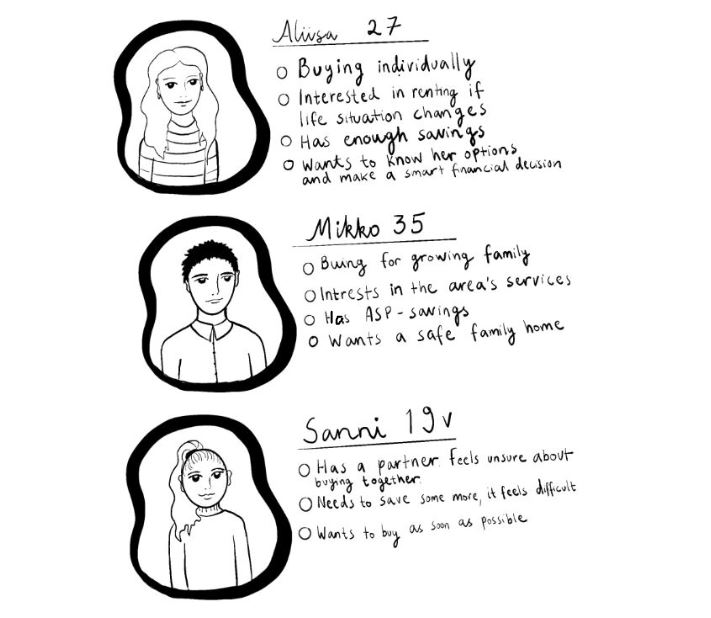 Aliisa 27
Buying individually
Interested in renting if
life situation changes
Has enough savings
Wants to know her options
and make a smart financial decision
Mikko 35
Buing for growing family
Intrests in the area's services
Has ASP-savings
Wants a safe family home
Sanni 19v
Has a partner. feels unsure about
buying together
Needs to save some more, it feels difficult
Wants to buy as soon as possible